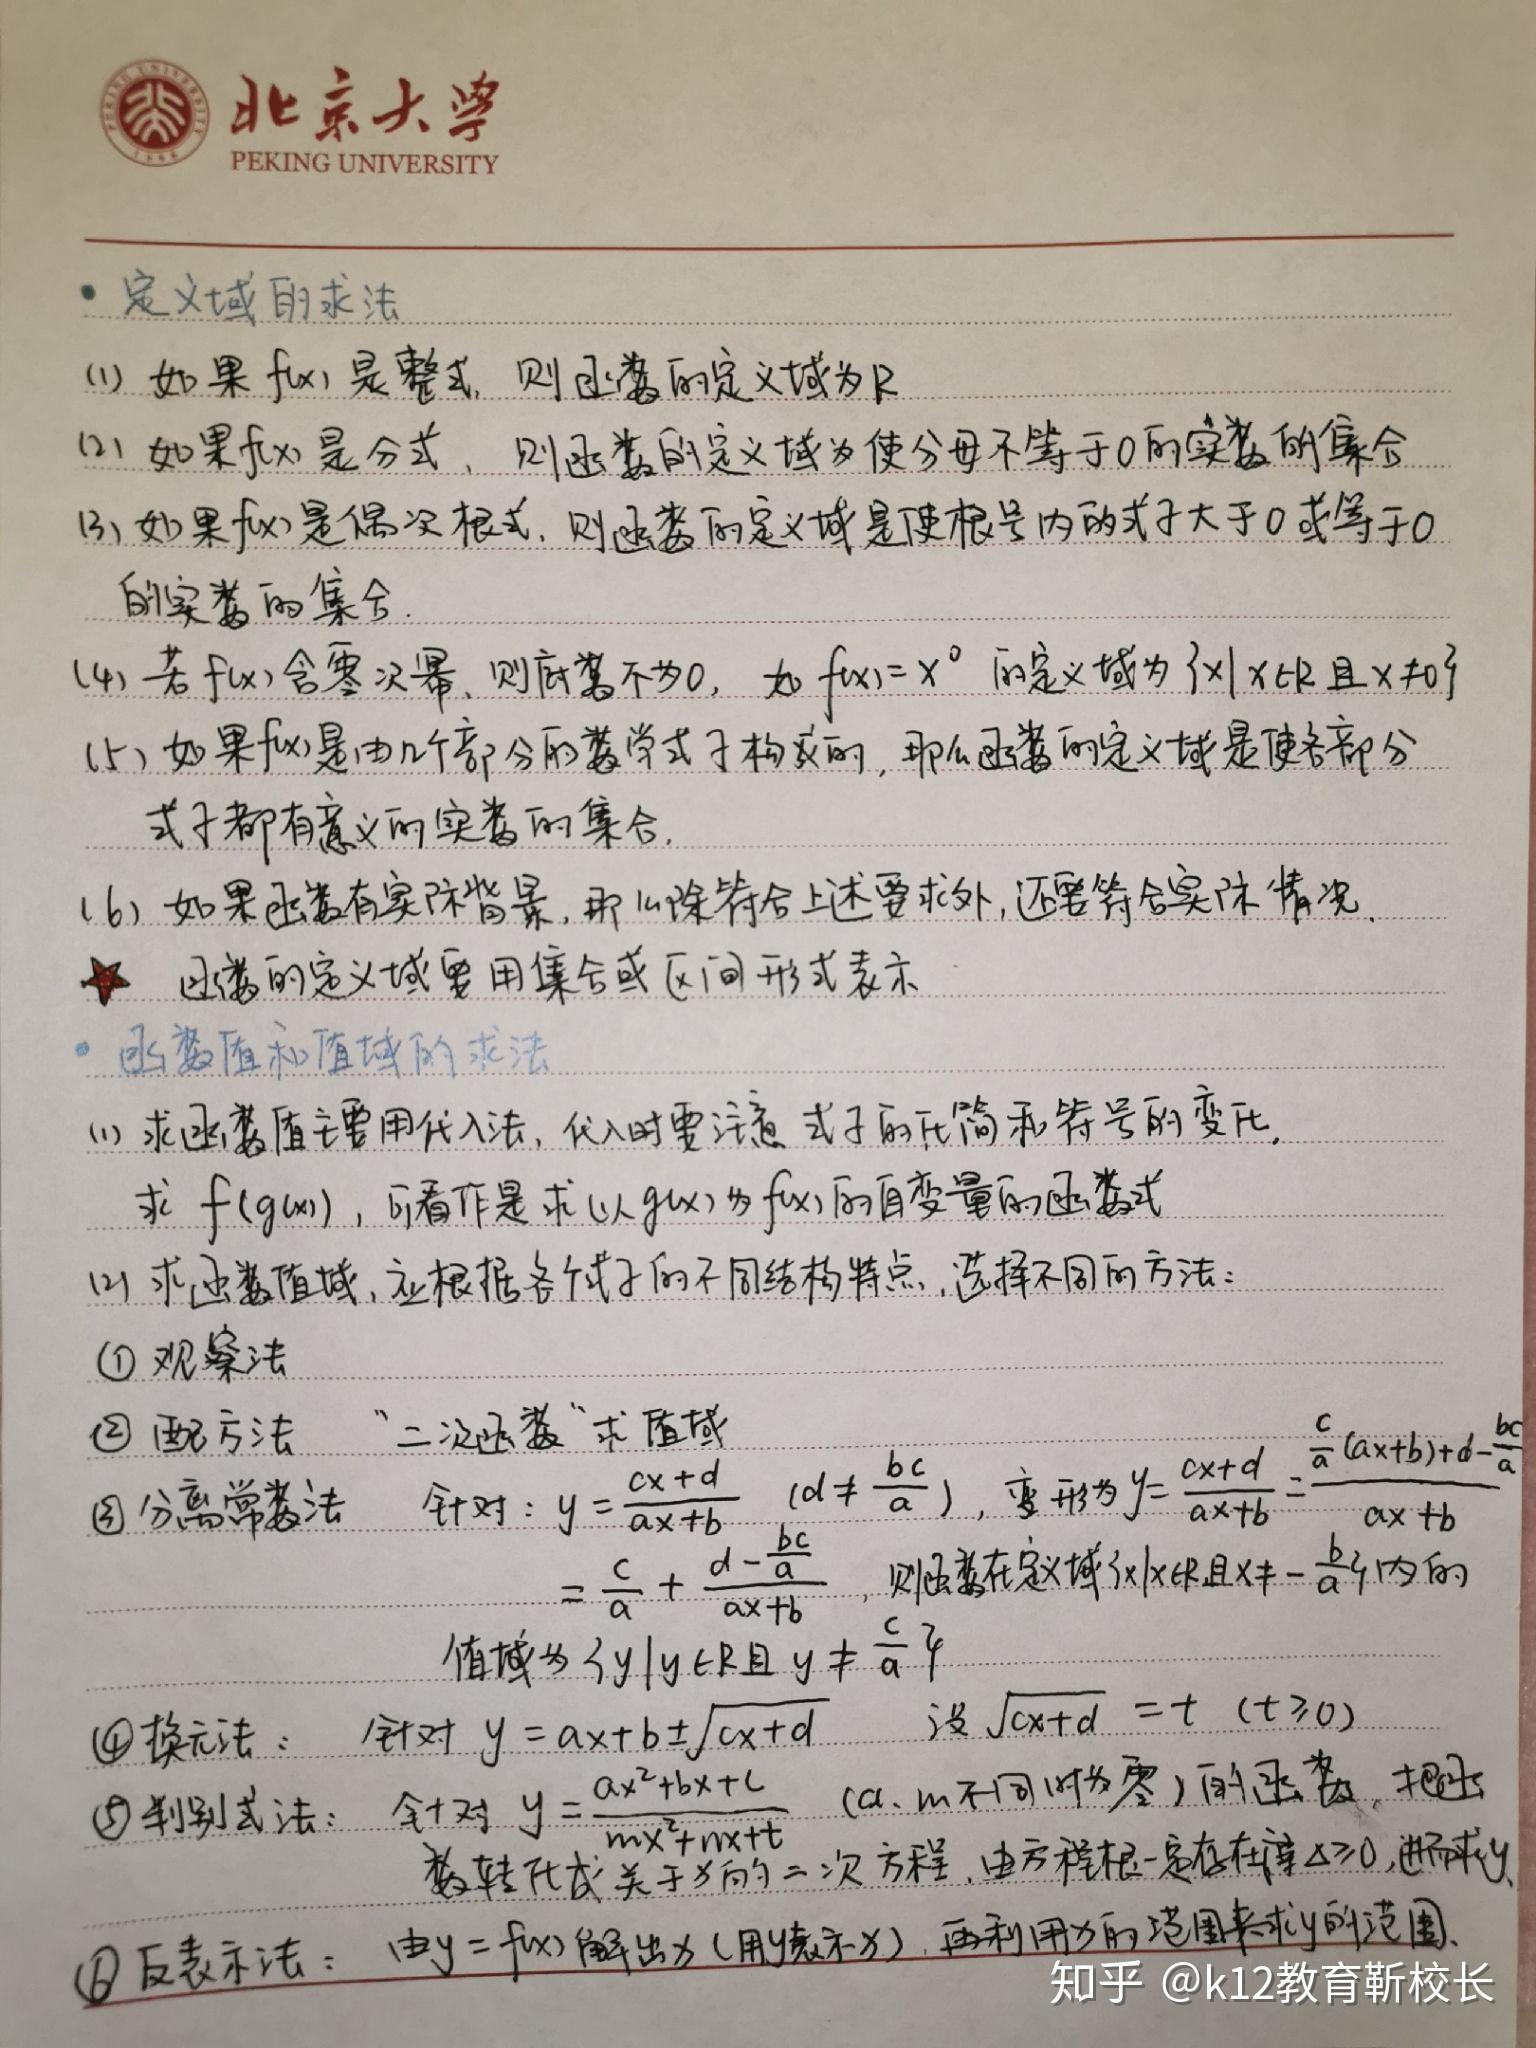 北京大学
PEKING UNIVERSITY
• 定义域的求法
(1) 如果f(x)是整式, 则函数的定义域为R
(2) 如果f(x)是分式, 则函数的定义域为使分母不等于0的实数的集合
(3) 如果f(x)是偶次根式, 则函数的定义域是使根号内的式子大于0或等于0
的实数的集合.
(4) 若f(x)含零次幂, 则底数不为0, 如 f(x)=x⁰ 的定义域为{x|x∈R且x≠0}
(5) 如果f(x)是由几个部分的数学式子构成的, 那么函数的定义域是使各部分
式子都有意义的实数的集合.
(6) 如果函数有实际背景, 那么除符合上述要求外, 还要符合实际情况.
★ 函数的定义域要用集合或区间形式表示
• 函数值和值域的求法
(1) 求函数值主要用代入法, 代入时要注意式子的化简和符号的变化.
求 f(g(x)), 可看作是求以g(x)为f(x)的自变量的函数式
(2) 求函数值域, 应根据各个式子的不同结构特点, 选择不同的方法:
① 观察法
② 配方法 “二次函数”求值域
③ 分离常数法 针对: y = (cx+d)/(ax+b) (d ≠ bc/a), 变形为 y = (cx+d)/(ax+b) = (c/a (ax+b)+d-bc/a)/(ax+b)
= c/a + (d - bc/a)/(ax+b), 则函数在定义域{x|x∈R且x≠-b/a}内的
值域为{y|y∈R且 y ≠ c/a}
④ 换元法: 针对 y = ax+b±√(cx+d) 设√(cx+d) = t (t≥0)
⑤ 判别式法: 针对 y = (ax²+bx+c)/(mx²+nx+t) (a、m不同时为零)的函数, 把函
数转化成关于x的二次方程, 由方程根一定存在得△≥0, 进而求y.
⑥ 反表示法: 由y=f(x)解出x(用y表示x), 再利用x的范围来求y的范围.
知乎 @k12教育靳校长